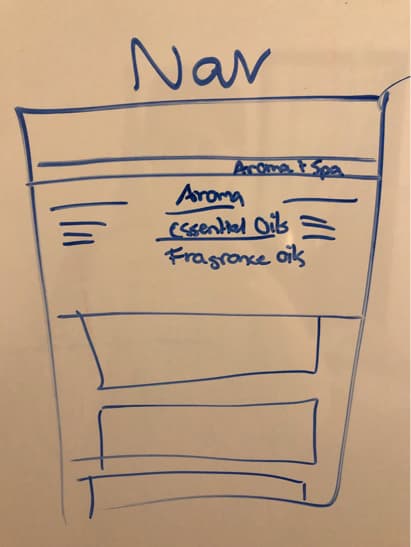 Nav
Aroma + Spa
Aroma
Essential Oils
Fragrance oils